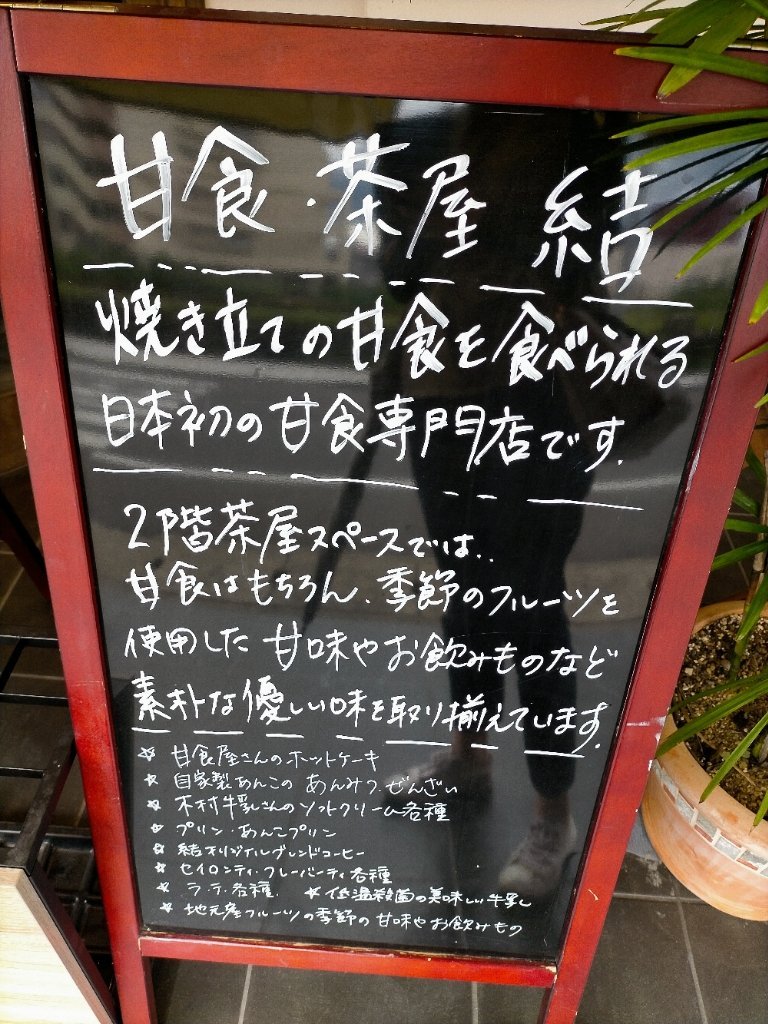 甘食・茶屋 結
焼き立ての甘食を食べられる
日本初の甘食専門店です.
2階茶屋スペースでは..
甘食はもちろん、季節のフルーツを
使用した甘味やお飲みものなど
素朴な優しい味を取り揃えています.
☆ 甘食屋さんのホットケーキ
☆ 自家製あんこの あんみつ、ぜんざい
☆ 木村牛乳さんのソフトクリーム各種
☆ プリン・あんこプリン
☆ 結オリジナルブレンドコーヒー
☆ セイロンティ・フレーバーティ各種
☆ ラテ・各種 ☆ 低温殺菌の美味しい牛乳
☆ 地元産フルーツの季節の甘味やお飲みもの